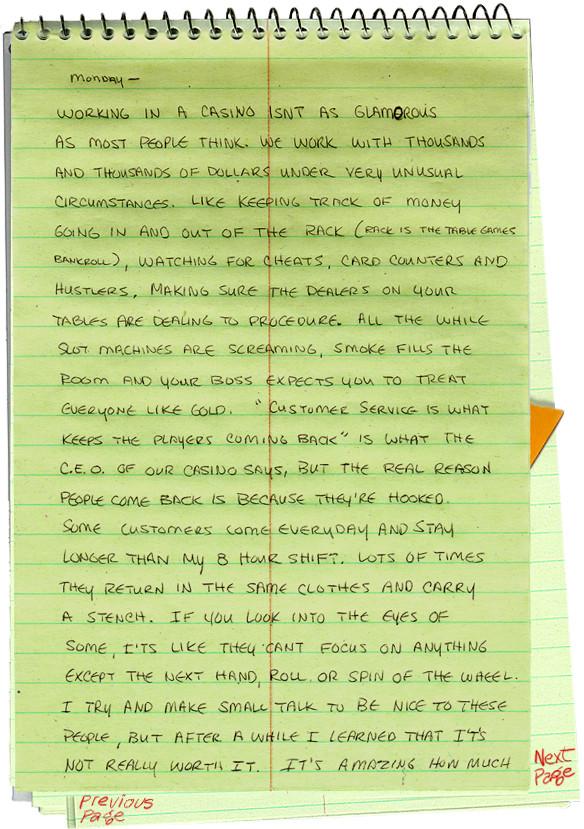 MONDAY —
WORKING IN A CASINO ISNT AS GLAMOROUS
AS MOST PEOPLE THINK. WE WORK WITH THOUSANDS
AND THOUSANDS OF DOLLARS UNDER VERY UNUSUAL
CIRCUMSTANCES. LIKE KEEPING TRACK OF MONEY
GOING IN AND OUT OF THE RACK (RACK IS THE TABLE GAMES
BANKROLL), WATCHING FOR CHEATS, CARD COUNTERS AND
HUSTLERS, MAKING SURE THE DEALERS ON YOUR
TABLES ARE DEALING TO PROCEDURE. ALL THE WHILE
SLOT MACHINES ARE SCREAMING, SMOKE FILLS THE
ROOM AND YOUR BOSS EXPECTS YOU TO TREAT
EVERYONE LIKE GOLD. "CUSTOMER SERVICE IS WHAT
KEEPS THE PLAYERS COMING BACK" IS WHAT THE
C.E.O. OF OUR CASINO SAYS, BUT THE REAL REASON
PEOPLE COME BACK IS BECAUSE THEY'RE HOOKED.
SOME CUSTOMERS COME EVERYDAY AND STAY
LONGER THAN MY 8 HOUR SHIFT. LOTS OF TIMES
THEY RETURN IN THE SAME CLOTHES AND CARRY
A STENCH. IF YOU LOOK INTO THE EYES OF
SOME, I'TS LIKE THEY CANT FOCUS ON ANYTHING
EXCEPT THE NEXT HAND, ROLL OR SPIN OF THE WHEEL.
I TRY AND MAKE SMALL TALK TO BE NICE TO THESE
PEOPLE, BUT AFTER A WHILE I LEARNED THAT IT'S
NOT REALLY WORTH IT. IT'S AMAZING HOW MUCH
Next
Page
Previous
Page